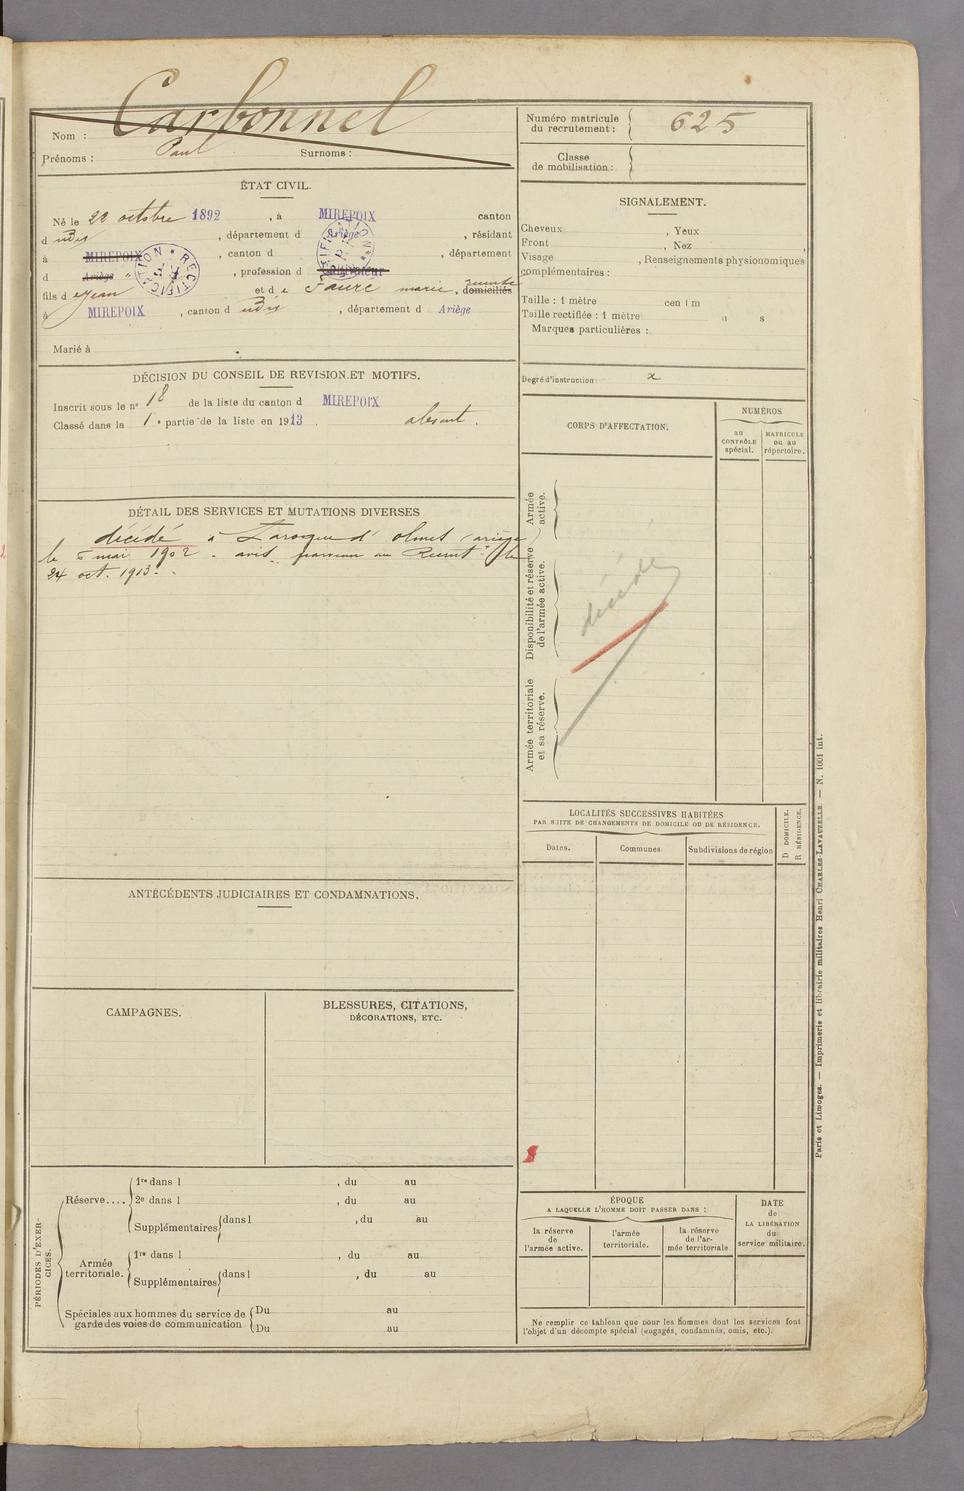 Nom : Carbonnel
Prénoms : Paul Surnoms :
ÉTAT CIVIL.
Né le 22 octobre 1892, à MIREPOIX canton
d udis, département d Ariège, résidant
à MIREPOIX, canton d , département
d Ariège, profession d Cultivateur
fils d e Jean et d e Faure marie, domiciliés
à MIREPOIX, canton d udis, département d Ariège
Marié à
DÉCISION DU CONSEIL DE REVISION ET MOTIFS.
Inscrit sous le n° 18 de la liste du canton d MIREPOIX
Classé dans la 1e partie de la liste en 1913. absent.
DÉTAIL DES SERVICES ET MUTATIONS DIVERSES
décédé à Laroque d'olmes (ariège
le 6 mai 1902 - avis parvenu au Recrut. le
24 oct. 1913.
ANTÉCÉDENTS JUDICIAIRES ET CONDAMNATIONS.
CAMPAGNES.
BLESSURES, CITATIONS,
DÉCORATIONS, ETC.
PÉRIODES D'EXERCICES.
Réserve....
1re dans l , du au
2e dans l , du au
Supplémentaires dans l , du au
Armée
territoriale.
1re dans l , du au
Supplémentaires dans l , du au
Spéciales aux hommes du service de
garde des voies de communication
Du au
Du au
Numéro matricule
du recrutement : 625
Classe
de mobilisation :
SIGNALEMENT.
Cheveux , Yeux
Front , Nez
Visage , Renseignements physionomiques
complémentaires :
Taille : 1 mètre cen t m
Taille rectifiée : 1 mètre s
Marques particulières :
Degré d'instruction : x
CORPS D'AFFECTATION.
NUMÉROS
au
CONTRÔLE
spécial.
MATRICULE
ou au
répertoire.
Armée
active.
Disponibilité et réserve
de l'armée active.
Armée territoriale
et sa réserve.
décédé
LOCALITÉS SUCCESSIVES HABITÉES
PAR SUITE DE CHANGEMENTS DE DOMICILE OU DE RÉSIDENCE.
D DOMICILE.
R RÉSIDENCE.
Dates.
Communes
Subdivisions de région
ÉPOQUE
A LAQUELLE L'HOMME DOIT PASSER DANS :
la réserve
de
l'armée active.
l'armée
territoriale.
la réserve
de l'ar-
mée territoriale
DATE
de
LA LIBÉRATION
du
service militaire.
Ne remplir ce tableau que pour les hommes dont les services font
l'objet d'un décompte spécial (engagés, condamnés, omis, etc.).
Paris et Limoges. — Imprimerie et librairie militaires Henri CHARLES-LAVAUZELLE. — N. 1001 int.
RECTIFICATION